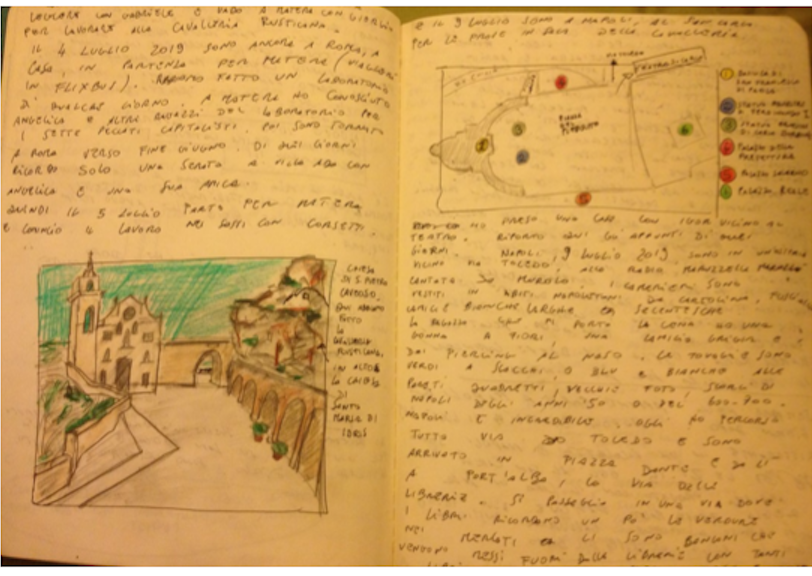 LAVORARE CON GABRIELE E VADO A MATERA CON GIORGIA
PER LAVORARE ALLA CAVALLERIA RUSTICANA.
IL 4 LUGLIO 2019 SONO ANCORA A ROMA, A
CASA, IN PARTENZA PER MATERA (VIAGGERÒ
IN FLIXBUS). FATTO UN LABORATORIO
DI QUALCHE GIORNO. A MATERA HO CONOSCIUTO
ANGELICA E ALTRI RAGAZZI DEL LABORATORIO PER
I SETTE PECCATI CAPITALISTI. POI SONO TORNATO
A ROMA VERSO FINE GIUGNO. DI QUEI GIORNI
RICORDO SOLO UNA SERATA A VILLA ADA CON
ANGELICA E UNA SUA AMICA.
QUINDI IL 5 LUGLIO PARTO PER MATERA
E COMINCIO IL LAVORO NEI SASSI CON CORSETTI.
CHIESA
DI S. PIETRO
CAVEOSO.
QUI ABBIAMO
FATTO
LA
CAVALLERIA
RUSTICANA,
IN ALTO
LA CHIESA
DI
SANTA
MARIA DI
IDRIS
E IL 9 LUGLIO SONO A NAPOLI, AL SAN CARLO
PER LE PROVE IN SALA DELLA CAVALLERIA
PIAZZA
DEL
PLEBISCITO
1 BASILICA DI
SAN FRANCESCO
DI PAOLA
2 STATUA EQUESTRE
DI FERDINANDO I
3 STATUA EQUESTRE
DI CARLO BORBONE
4 PALAZZO DELLA
PREFETTURA
5 PALAZZO SALERNO
6 PALAZZO REALE
HO PRESO UNA CASA CON IGOR VICINO AL
TEATRO. RIPORTO QUI GLI APPUNTI DI QUEI
GIORNI. NAPOLI, 9 LUGLIO 2019 SONO IN UN'OSTERIA
VICINO VIA TOLEDO, ALLA RADIO MARUZZELLA
CANTATA DA MUROLO. I CAMERIERI SONO
VESTITI IN ABITI NAPOLETANI DA CARTOLINA,
CAMICIE BIANCHE LARGHE ED SEICENTESCHE
LA RAGAZZA CHE MI PORTA LA CENA HA UNA
GONNA A FIORI, UNA CAMICIA GRIGIA E
DAI PIERCING AL NASO. LE TOVAGLIE SONO
VERDI A SCACCHI O BLU E BIANCHE ALLE
PARETI QUADRETTI, VECCHIE FOTO SCORCI DI
NAPOLI DEGLI ANNI '50 O DEL 600-700.
NAPOLI È INCREDIBILE OGGI HO PERCORSO
TUTTO VIA TOLEDO E SONO
ARRIVATO IN PIAZZA DANTE E DA LÌ
A PORT'ALBA, LA VIA DELLE
LIBRERIE. SI PASSEGGIA IN UNA VIA DOVE
I LIBRI RICORDANO UN PO' LE VERDURE
NEI MERCATI ED LÌ SONO BANCONI CHE
VENGONO MESSI FUORI DALLE LIBRERIE CON TANTI